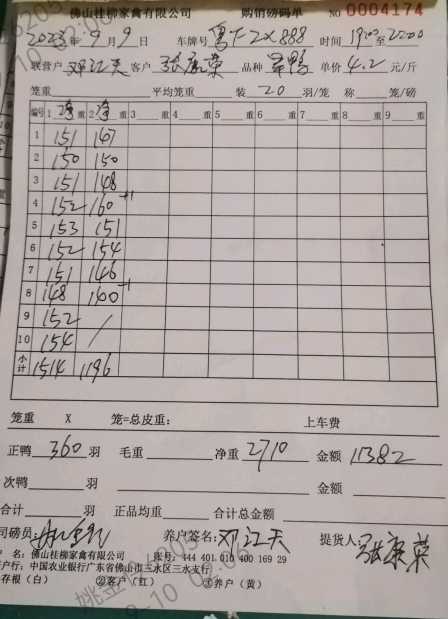 佛山桂柳家禽有限公司 购销磅码单 NO 0004174
2023年9月9日 车牌号 粤F2X888 时间 1900至2200
联营户 邓江天 客户 张康荣 品种 单价 4.2 元/斤
笼重 平均笼重 装 20 羽/笼 称 笼/磅
编号 1 净重 2 净重 3 重 4 重 5 重 6 重 7 重 8 重 9 重
1 151 147
2 150 150
3 151 148
4 152 160 +1
5 153 151
6 152 154
7 151 146
8 148 140 -1
9 152 /
10 154
小计 1514 1196
笼重 X 笼=总皮重: 上车费
正鸭 360 羽 毛重 净重 2710 金额 11382
次鸭 羽 金额
合计 羽 正品均重 合计总金额
司磅员: 养户签名: 邓江天 提货人: 张康荣
名: 佛山桂柳家禽有限公司 账号: 444 401 010 400 169 29
户行: 中国农业银行广东省佛山市三水区三水支行
存根(白) ②客户(红) ③养户(黄)